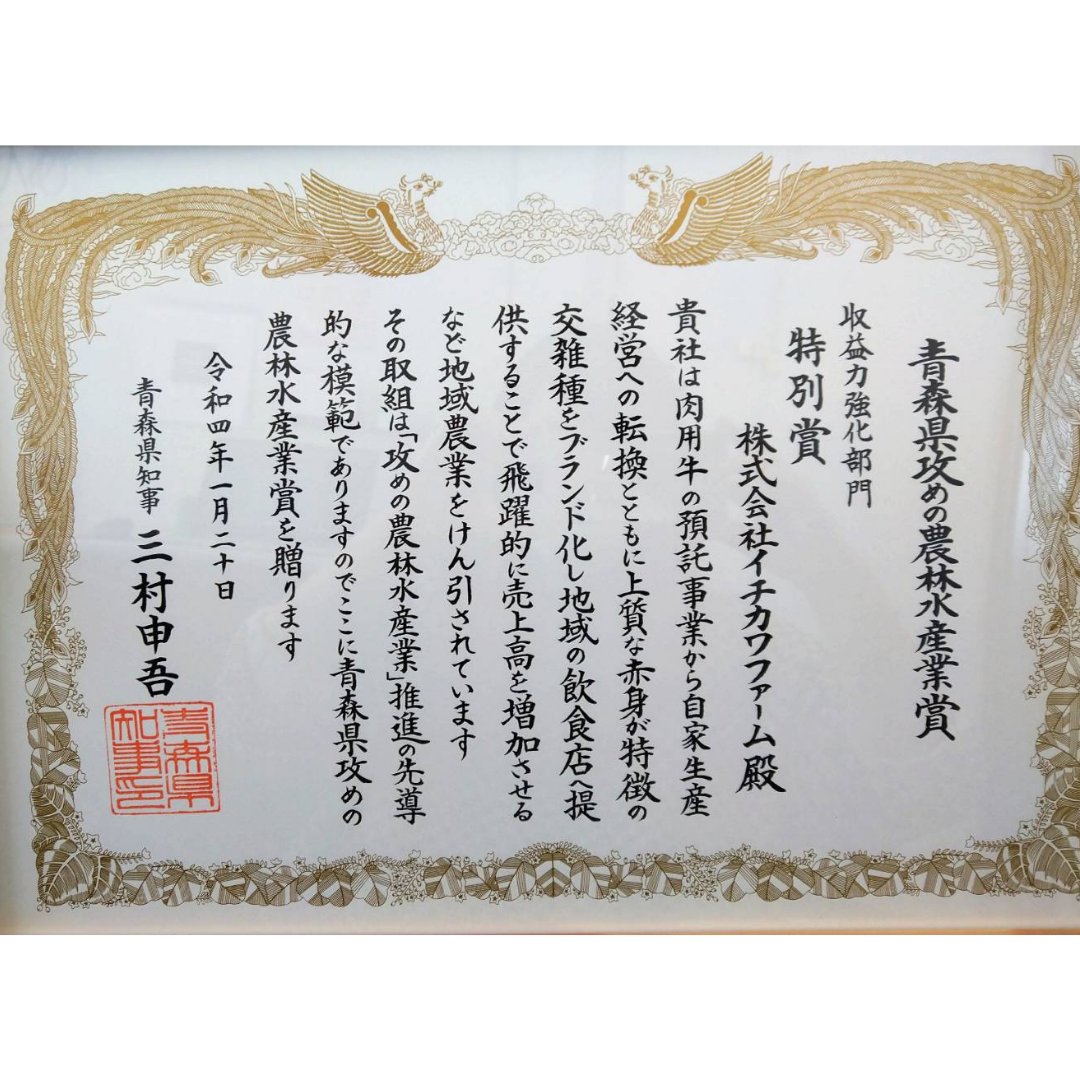 青森県攻めの農林水産業賞
収益力強化部門
特別賞
株式会社イチカワファーム殿
貴社は肉用牛の預託事業から自家生産
経営への転換とともに上質な赤身が特徴の
交雑種をブランド化し地域の飲食店へ提
供することで飛躍的に売上高を増加させる
など地域農業をけん引されています
その取組は「攻めの農林水産業」推進の先導
的な模範でありますのでここに青森県攻めの
農林水産業賞を贈ります
令和四年一月二十日
青森県知事 三村申吾
青森県
知事印